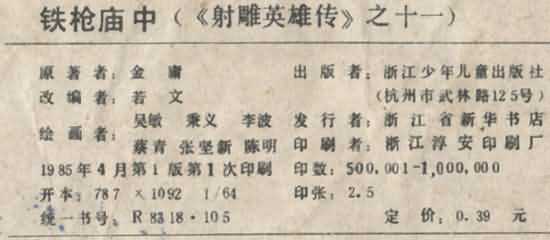 铁枪庙中（《射雕英雄传》之十一）
原著者：金庸 出版者：浙江少年儿童出版社
改编者：若文 （杭州市武林路125号）
绘画者：吴敏 秉义 李波 发行者：浙江省新华书店
蔡青 张坚新 陈明 印刷者：浙江淳安印刷厂
1985年4月第1版第1次印刷 印数：500.001-1,000.000
开本：787×1092 1/64 印张：2.5
统一书号：R8318·105 定价：0.39元